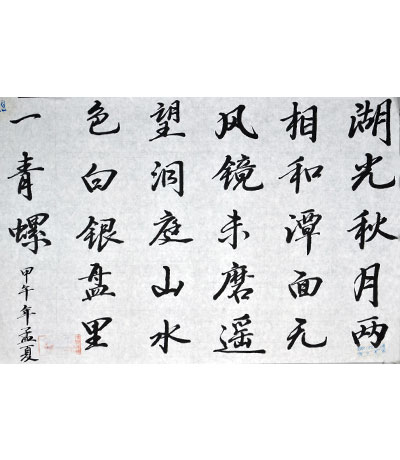 湖光秋月两
相和潭面无
风镜未磨遥
望洞庭山水
色白银盘里
一青螺
甲午年孟夏